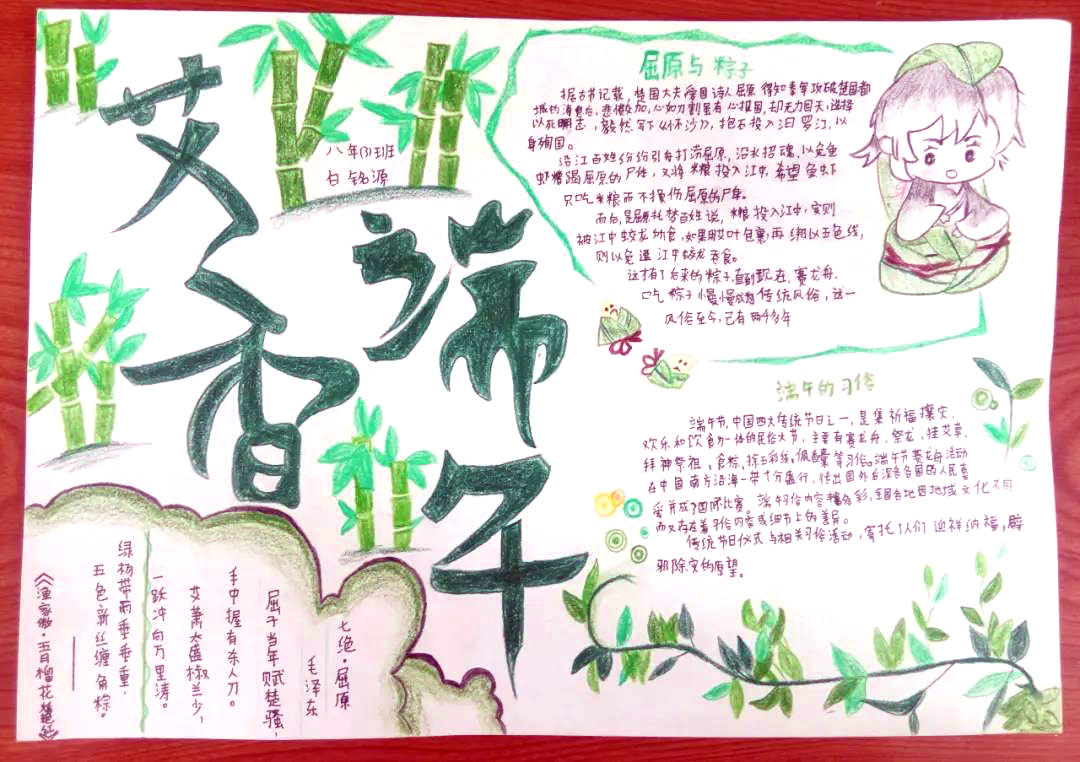 艾香
端午
八年(3)班
白铭源
屈原与粽子
据古书记载,楚国大夫爱国诗人屈原 得知秦军攻破楚国都
城的消息后,悲愤交加,心如刀割虽有心报国,却无力回天,选择
以死明志,毅然写下《怀沙》,抱石投入汨罗江,以
身殉国。
沿江百姓纷纷引舟打捞屈原,沿水招魂,以免鱼
虾糟蹋屈原的尸体,又将米粮投入江中,希望鱼虾
只吃米粮而不损伤屈原的尸身。
而后,是屈原托梦百姓说,米粮投入江中,实则
被江中蛟龙所食,如果取叶包裹,再绑以五色线,
则以免遭江中蛟龙吞食。
这才有了后来的粽子,直到现在,赛龙舟,
吃粽子慢慢成为传统风俗,这一
风俗至今,已有两千多年
端午的习俗
端午节,中国四大传统节日之一,是集祈福攘灾、
欢乐和饮食为一体的民俗大节,主要有赛龙舟、祭龙、挂艾草、
拜神祭祖、食粽、拴五彩线、佩香囊等习俗。端午节赛龙舟活动
在中国南方沿海一带十分盛行,传出国外后深受各国的人民喜
爱并成了国际比赛。端午习俗内容精分彩,全国各地因地域文化不同
而又存在着习俗内容或细节上的差异。
传统节日仪式与相关习俗活动,寄托了人们迎祥纳福,辟
邪除灾的愿望。
七绝·屈原
毛泽东
屈子当年赋楚骚,
手中握有杀人刀。
艾萧太盛椒兰少,
一跃冲向万里涛。
绿杨带雨垂垂重,
五色新丝缠角粽。
——《渔家傲·五月榴花妖艳烘》